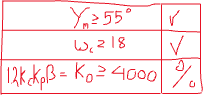 γm ≥ 55° ✓
ωc ≥ 18 ✓
12KcKpβ = K0 ≥ 4000